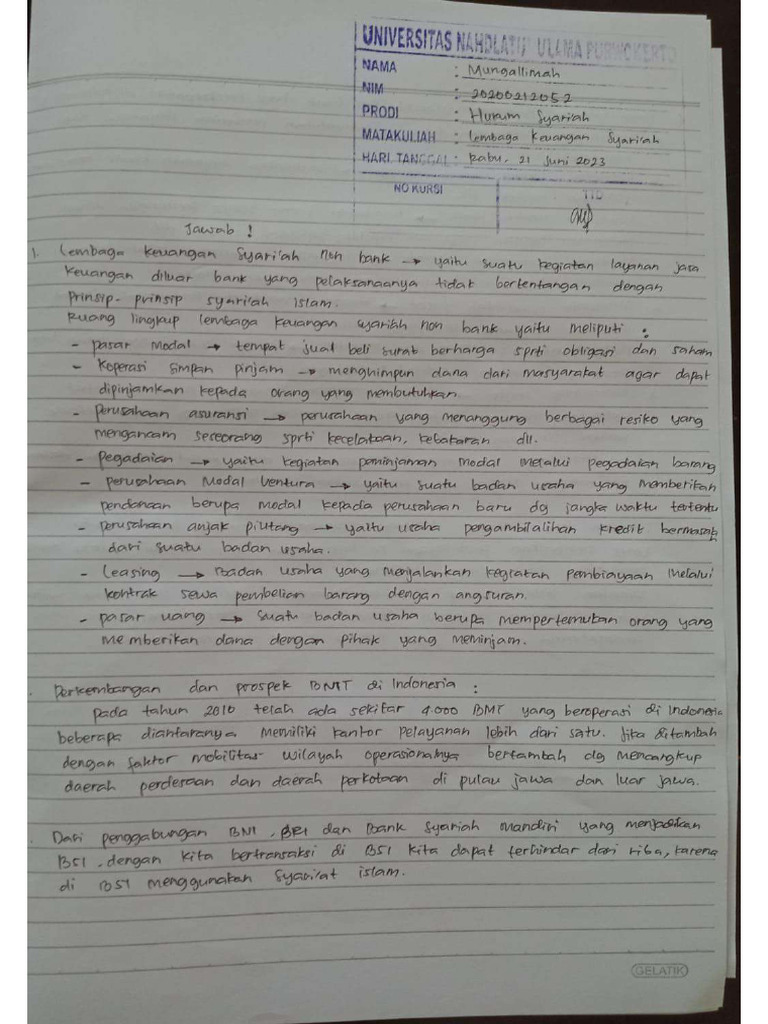 UNIVERSITAS NAHDLATUL ULAMA PURWOKERTO
NAMA : Mungallimah
NIM : 20200212052
PRODI : Hukum Syari'ah
MATAKULIAH : Lembaga Keuangan Syari'ah
HARI, TANGGAL : Rabu, 21 Juni 2023
NO KURSI TTD
Jawab !
1. Lembaga Keuangan Syari'ah non bank → yaitu suatu kegiatan layanan jasa
keuangan diluar bank yang pelaksanaanya tidak bertentangan dengan
prinsip-prinsip syari'ah islam.
Ruang lingkup lembaga keuangan syari'ah non bank yaitu meliputi :
- pasar modal → tempat jual beli surat berharga sprti obligasi dan saham
- Koperasi simpan pinjam → menghimpun dana dari masyarakat agar dapat
dipinjamkan kepada orang yang membutuhkan.
- perusahaan asuransi → perusahaan yang menanggung berbagai resiko yang
mengancam seseorang sprti kecelakaan, kebakaran dll.
- pegadaian → yaitu kegiatan peminjaman modal melalui pegadaian barang
- perusahaan Modal Ventura → yaitu suatu badan usaha yang memberikan
pendanaan berupa modal kepada perusahaan baru dg jangka waktu tertentu
- perusahaan anjak piutang → yaitu usaha pengambilalihan kredit bermasalh
dari suatu badan usaha.
- Leasing → Badan usaha yang menjalankan kegiatan pembiayaan melalui
kontrak sewa pembelian barang dengan angsuran.
- pasar uang → suatu badan usaha berupa mempertemukan orang yang
memberikan dana dengan pihak yang meminjam.
. Perkembangan dan prospek BMT di Indonesia :
pada tahun 2010 telah ada sekitar 4.000 BMT yang beroperasi di Indonesia
beberapa diantaranya memiliki kantor pelayanan lebih dari satu. Jika ditambah
dengan faktor mobilitas wilayah operasionalnya bertambah dg mencangkup
daerah perdesaan dan daerah perkotaan di pulau jawa dan luar jawa.
. Dari penggabungan BNI, BRI dan Bank Syariah Mandiri yang menjadikan
BSI. dengan kita bertransaksi di BSI kita dapat terhindar dari riba, karena
di BSI menggunakan Syari'at islam.
GELATIK